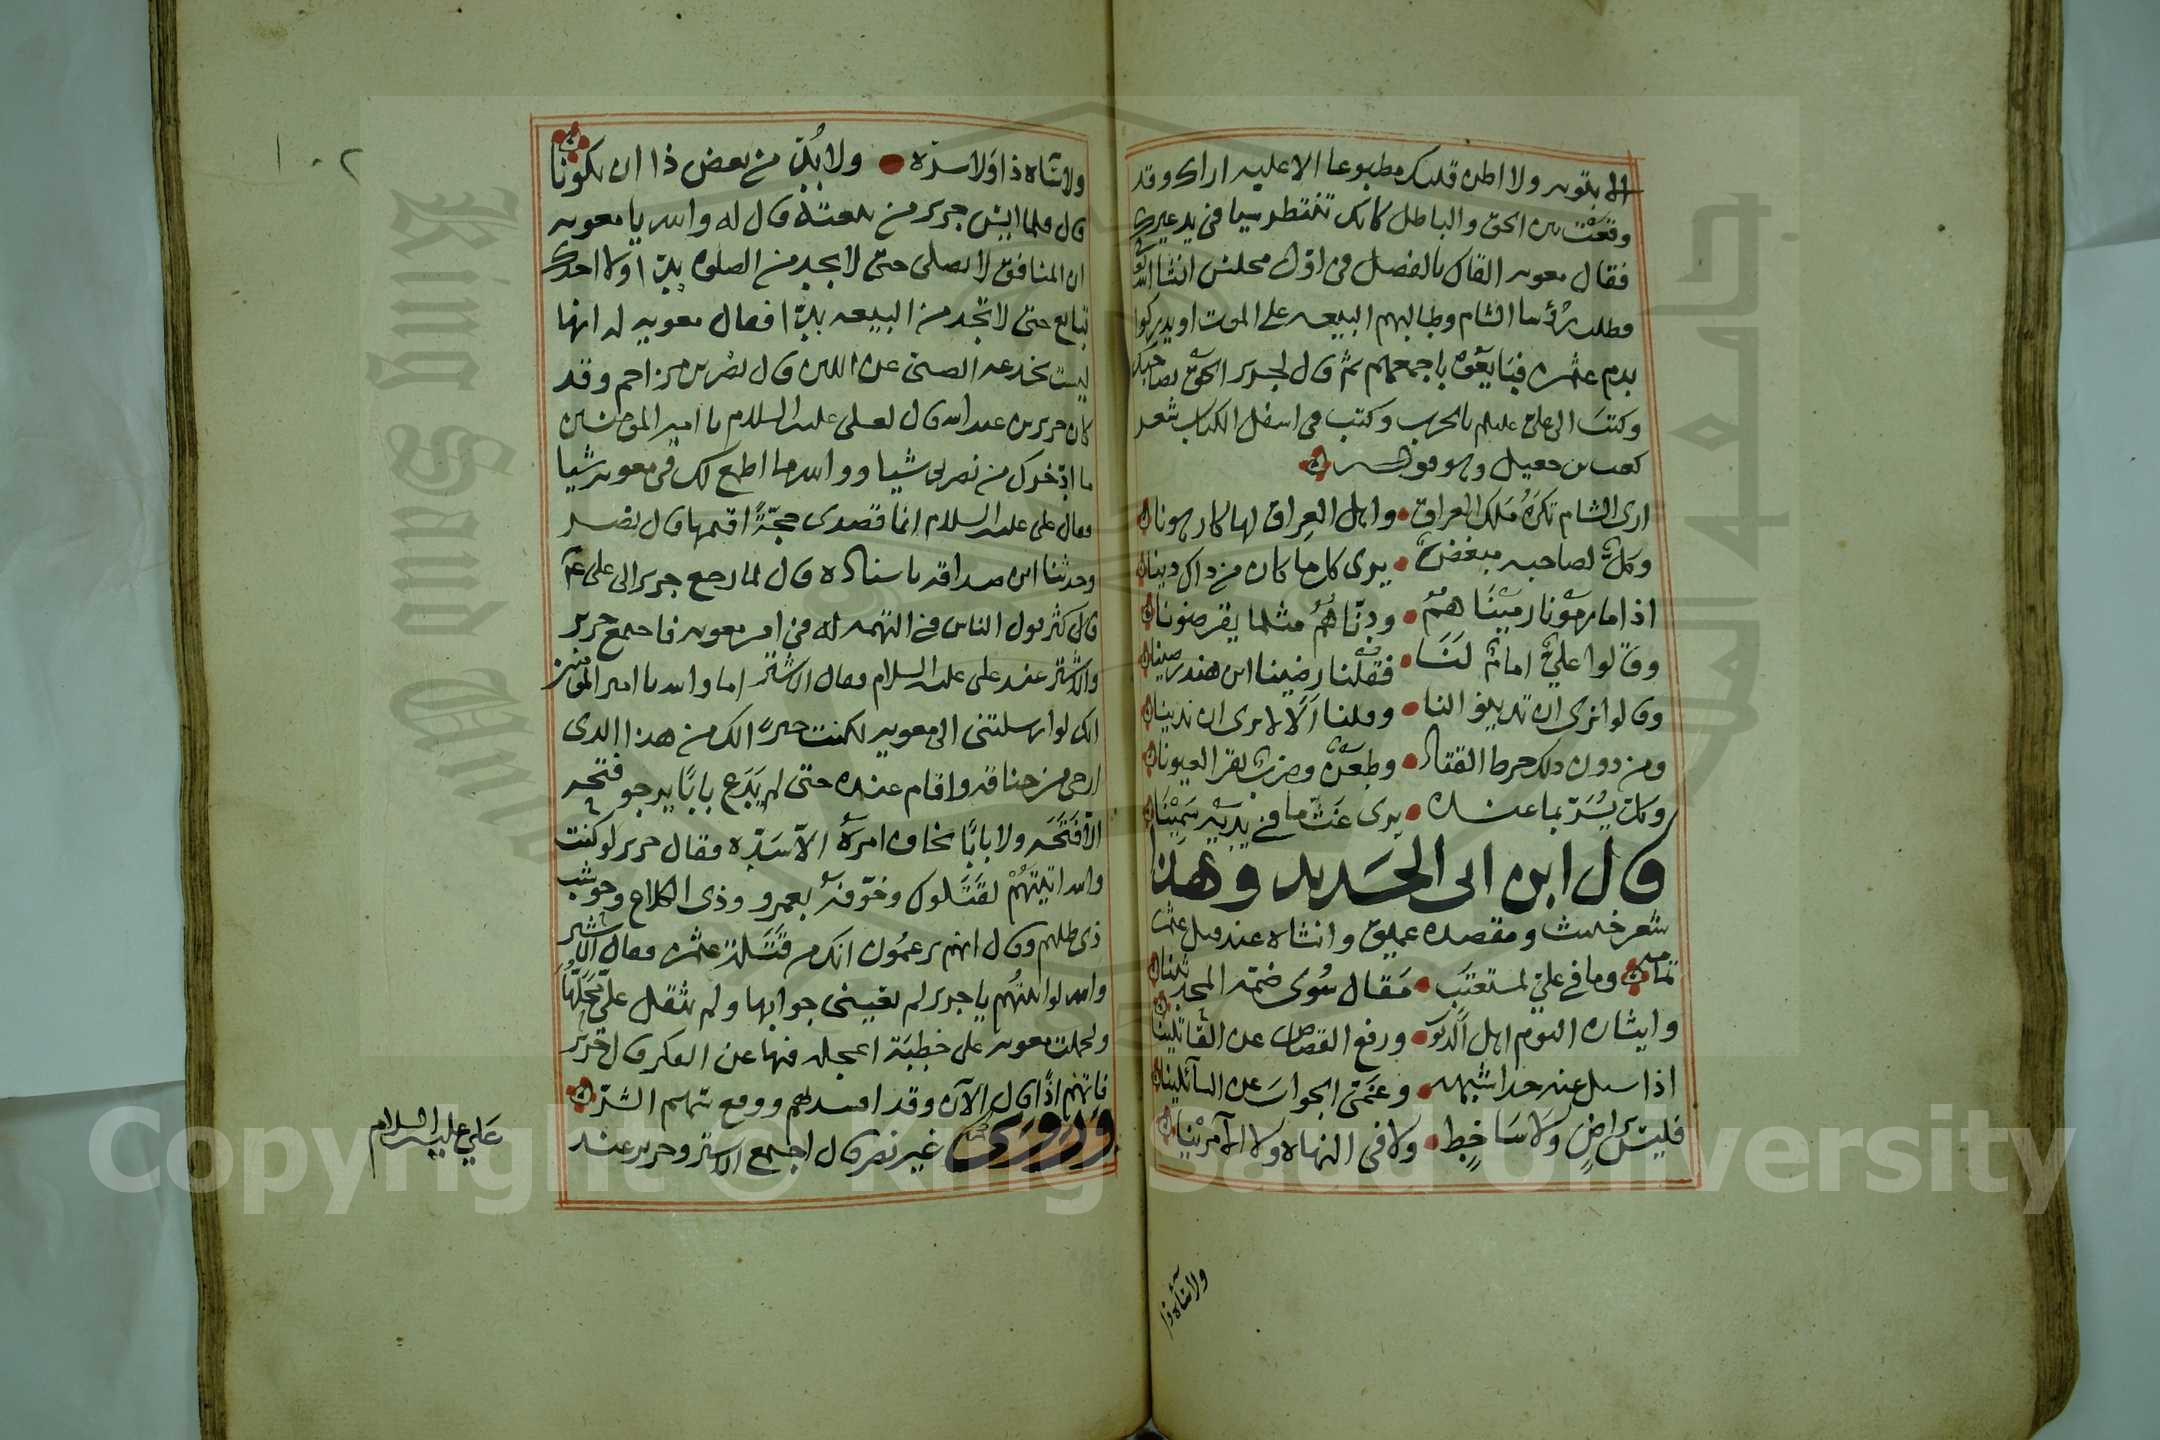 الا بتوبه ولا اظن قلبك مطبوعا الا عليه اراك وقد
وقفت بين الحق والباطل كانك تنتظر شيا في يد غيرك
فقال معويه القاك بالفصل في اول مجلس انشا الله
وطلب رؤسا الشام وطالبهم البيعه على الموت او يدركوا
بدم عثمن فبايعوه باجمعهم ثم قال لجرير الحق بصاحبك
وكتب الى علي عليلم بالحرب وكتب في اسفل الكتاب شعر
كعب بن جعيل وهو قوله
ارى الشام تكره ملك العراق • واهل العراق لها كارهونا
وكل لصاحبه مبغض • يرى كل ما كان من ذاك دينا
اذا ما رمونا رميناهم • ودناهم مثلما يقرضونا
وقالوا علي امام لنا • فقلنا رضينا ابن هند رضينا
وقالوا نرى ان تدينو النا • وقلنا الا لا نرى ان ندينا
ومن دون ذلك خرط القتاد • وطعن وضرب يقر العيونا
وكل يسر بما عنده • يرى غث ما في يديه سمينا
قال ابن ابي الحديد وهذا
شعر خبيث ومقصده عميق وانشاه عند قتل عثمن
تمامه وما في علي لمستعتب • مقال سوى ضمه المحدثينا
وايثاره اليوم اهل الذنوب • ورفع القصاص عن القاتلينا
اذا سيل عنه حدا شبهه • وعمى الجواب عن السائلينا
فليس براض ولا ساخط • ولا في النهاه ولا الامرينا
ولا شاه ذا
ولا شاه ذا ولا سره • ولا بد من بعض ذا ان يكونا
قال فلما ايس جرير من بعثته قال له والله يا معويه
ان المنافق لا يصلى حتى لا يجد من الصلوه بدا ولا احدك
تبايع حتى لا تجد من البيعه بدا فقال معويه له انها
ليست بخدعه الصبي عن اللبن قال نصر بن مزاحم وقد
كان جرير بن عبد الله قال لعلي عليه السلام يا امير المومنين
ما ادخرك من نصرتي شيا ووالله ما اطمع لك في معويه شيا
فقال علي عليه السلام انما قصدي حجة اقمها قال نصر
وحدثنا ابن صدقه باسناده قال لما رجع جرير الى علي عم
قال كثر قول الناس في التهمه له في امر معويه فاجمع جرير
والاشتر عند علي عليه السلام فقال الاشتر اما والله يا امير المومنين
الك لو ارسلتني الى معويه لكنت خيرا لك من هذا الذي
ارخى من خناقه واقام عنده حتى لم يدع بابا يرجو فتحه
الا فتحه ولا بابا يخاف امره الا سده فقال جرير لو كنت
والله اتيتهم لقتلوك وخوفه بعمرو وذي الكلاع وحوشب
ذي ظليم وقال انهم يزعمون انك من قتله عثمن وقال الاشتر
والله لو اتيتهم يا جرير لم يعييني جوابها ولم يثقل علي محملها
ولحملت معويه على خطبة اعجله فيها عن الفكر قال جرير
فاتهم اذا قال الان وقد افسدتهم ووقع بينهم الشر
وروى غير نصر قال اجتمع الاشتر وجرير عند
علي عليه السلام
١٠٢
Copyright © King Saud University
King Saud University